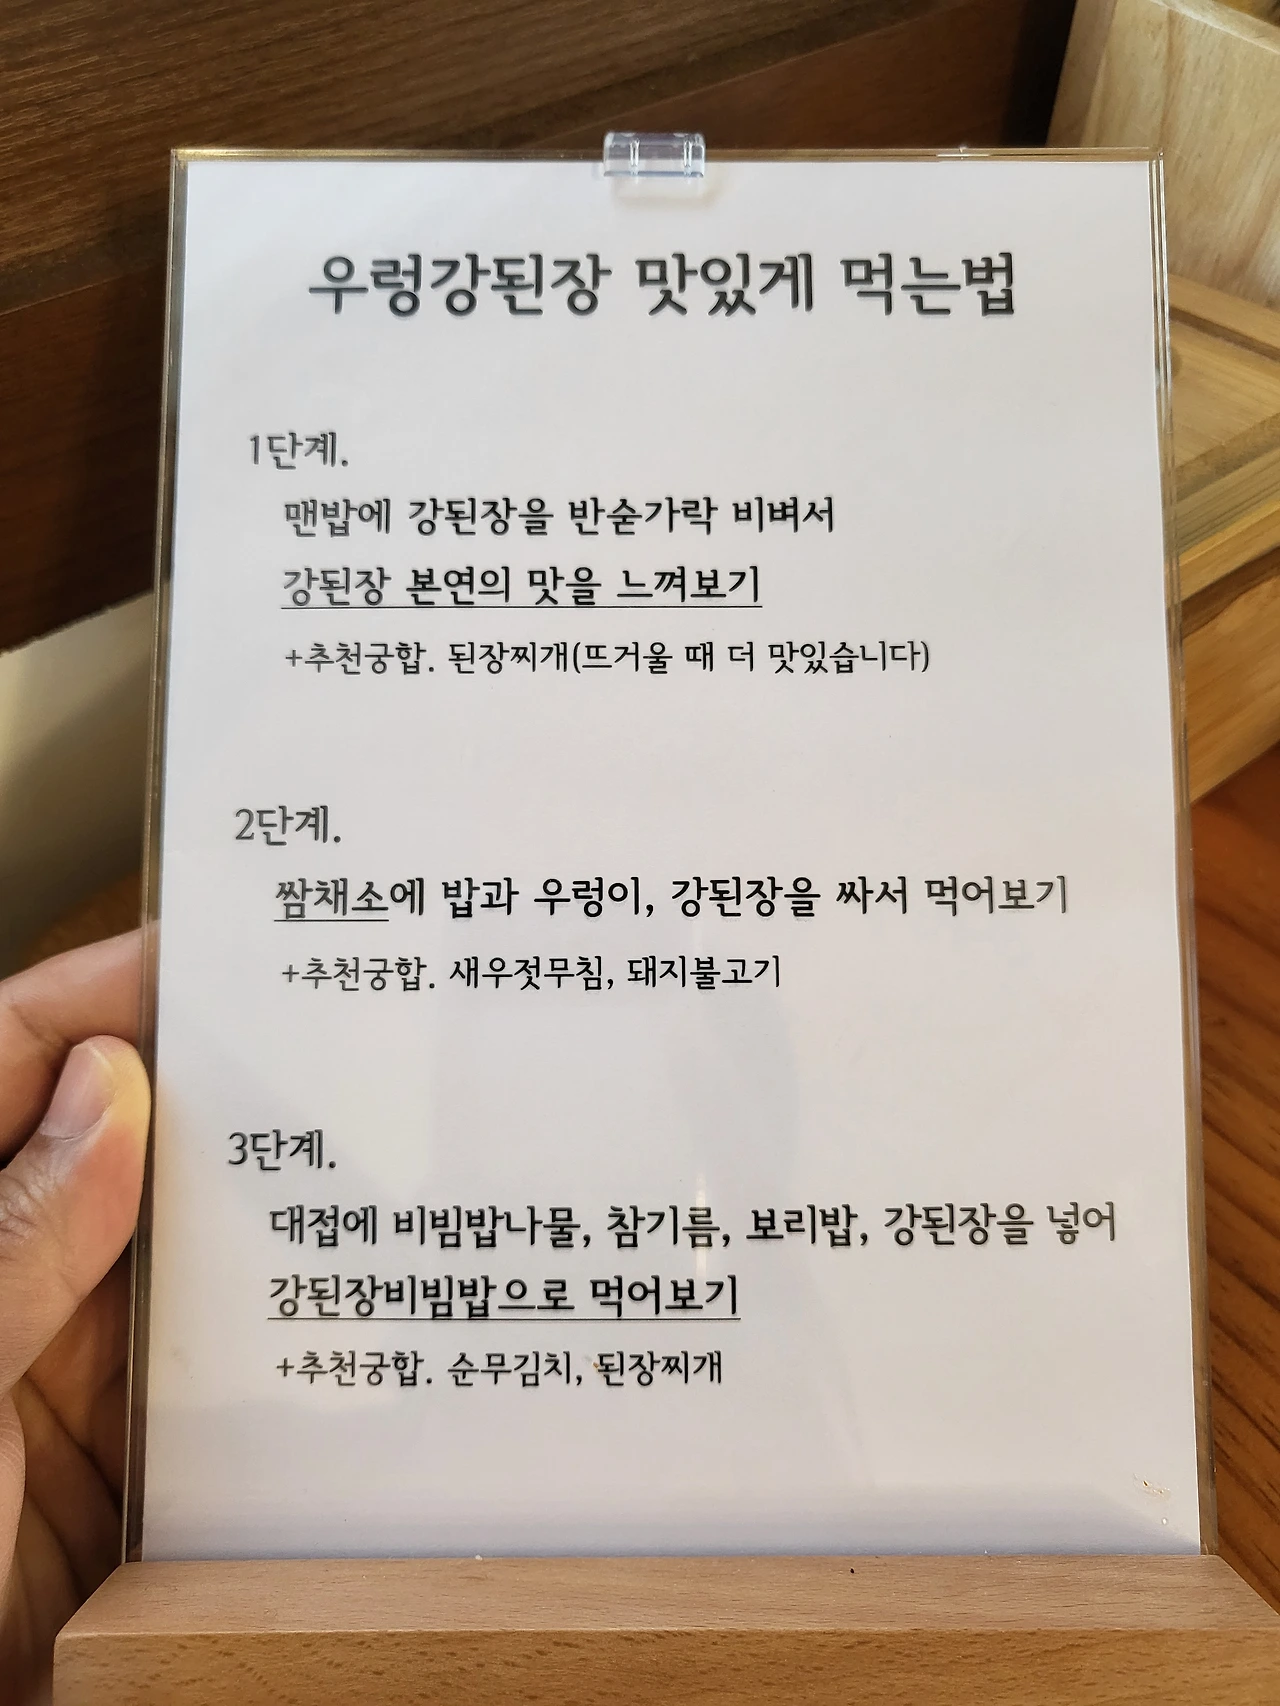 우렁강된장 맛있게 먹는법
1단계.
맨밥에 강된장을 반숟가락 비벼서
강된장 본연의 맛을 느껴보기
+추천궁합. 된장찌개(뜨거울 때 더 맛있습니다)
2단계.
쌈채소에 밥과 우렁이, 강된장을 싸서 먹어보기
+추천궁합. 새우젓무침, 돼지불고기
3단계.
대접에 비빔밥나물, 참기름, 보리밥, 강된장을 넣어
강된장비빔밥으로 먹어보기
+추천궁합. 순무김치, 된장찌개